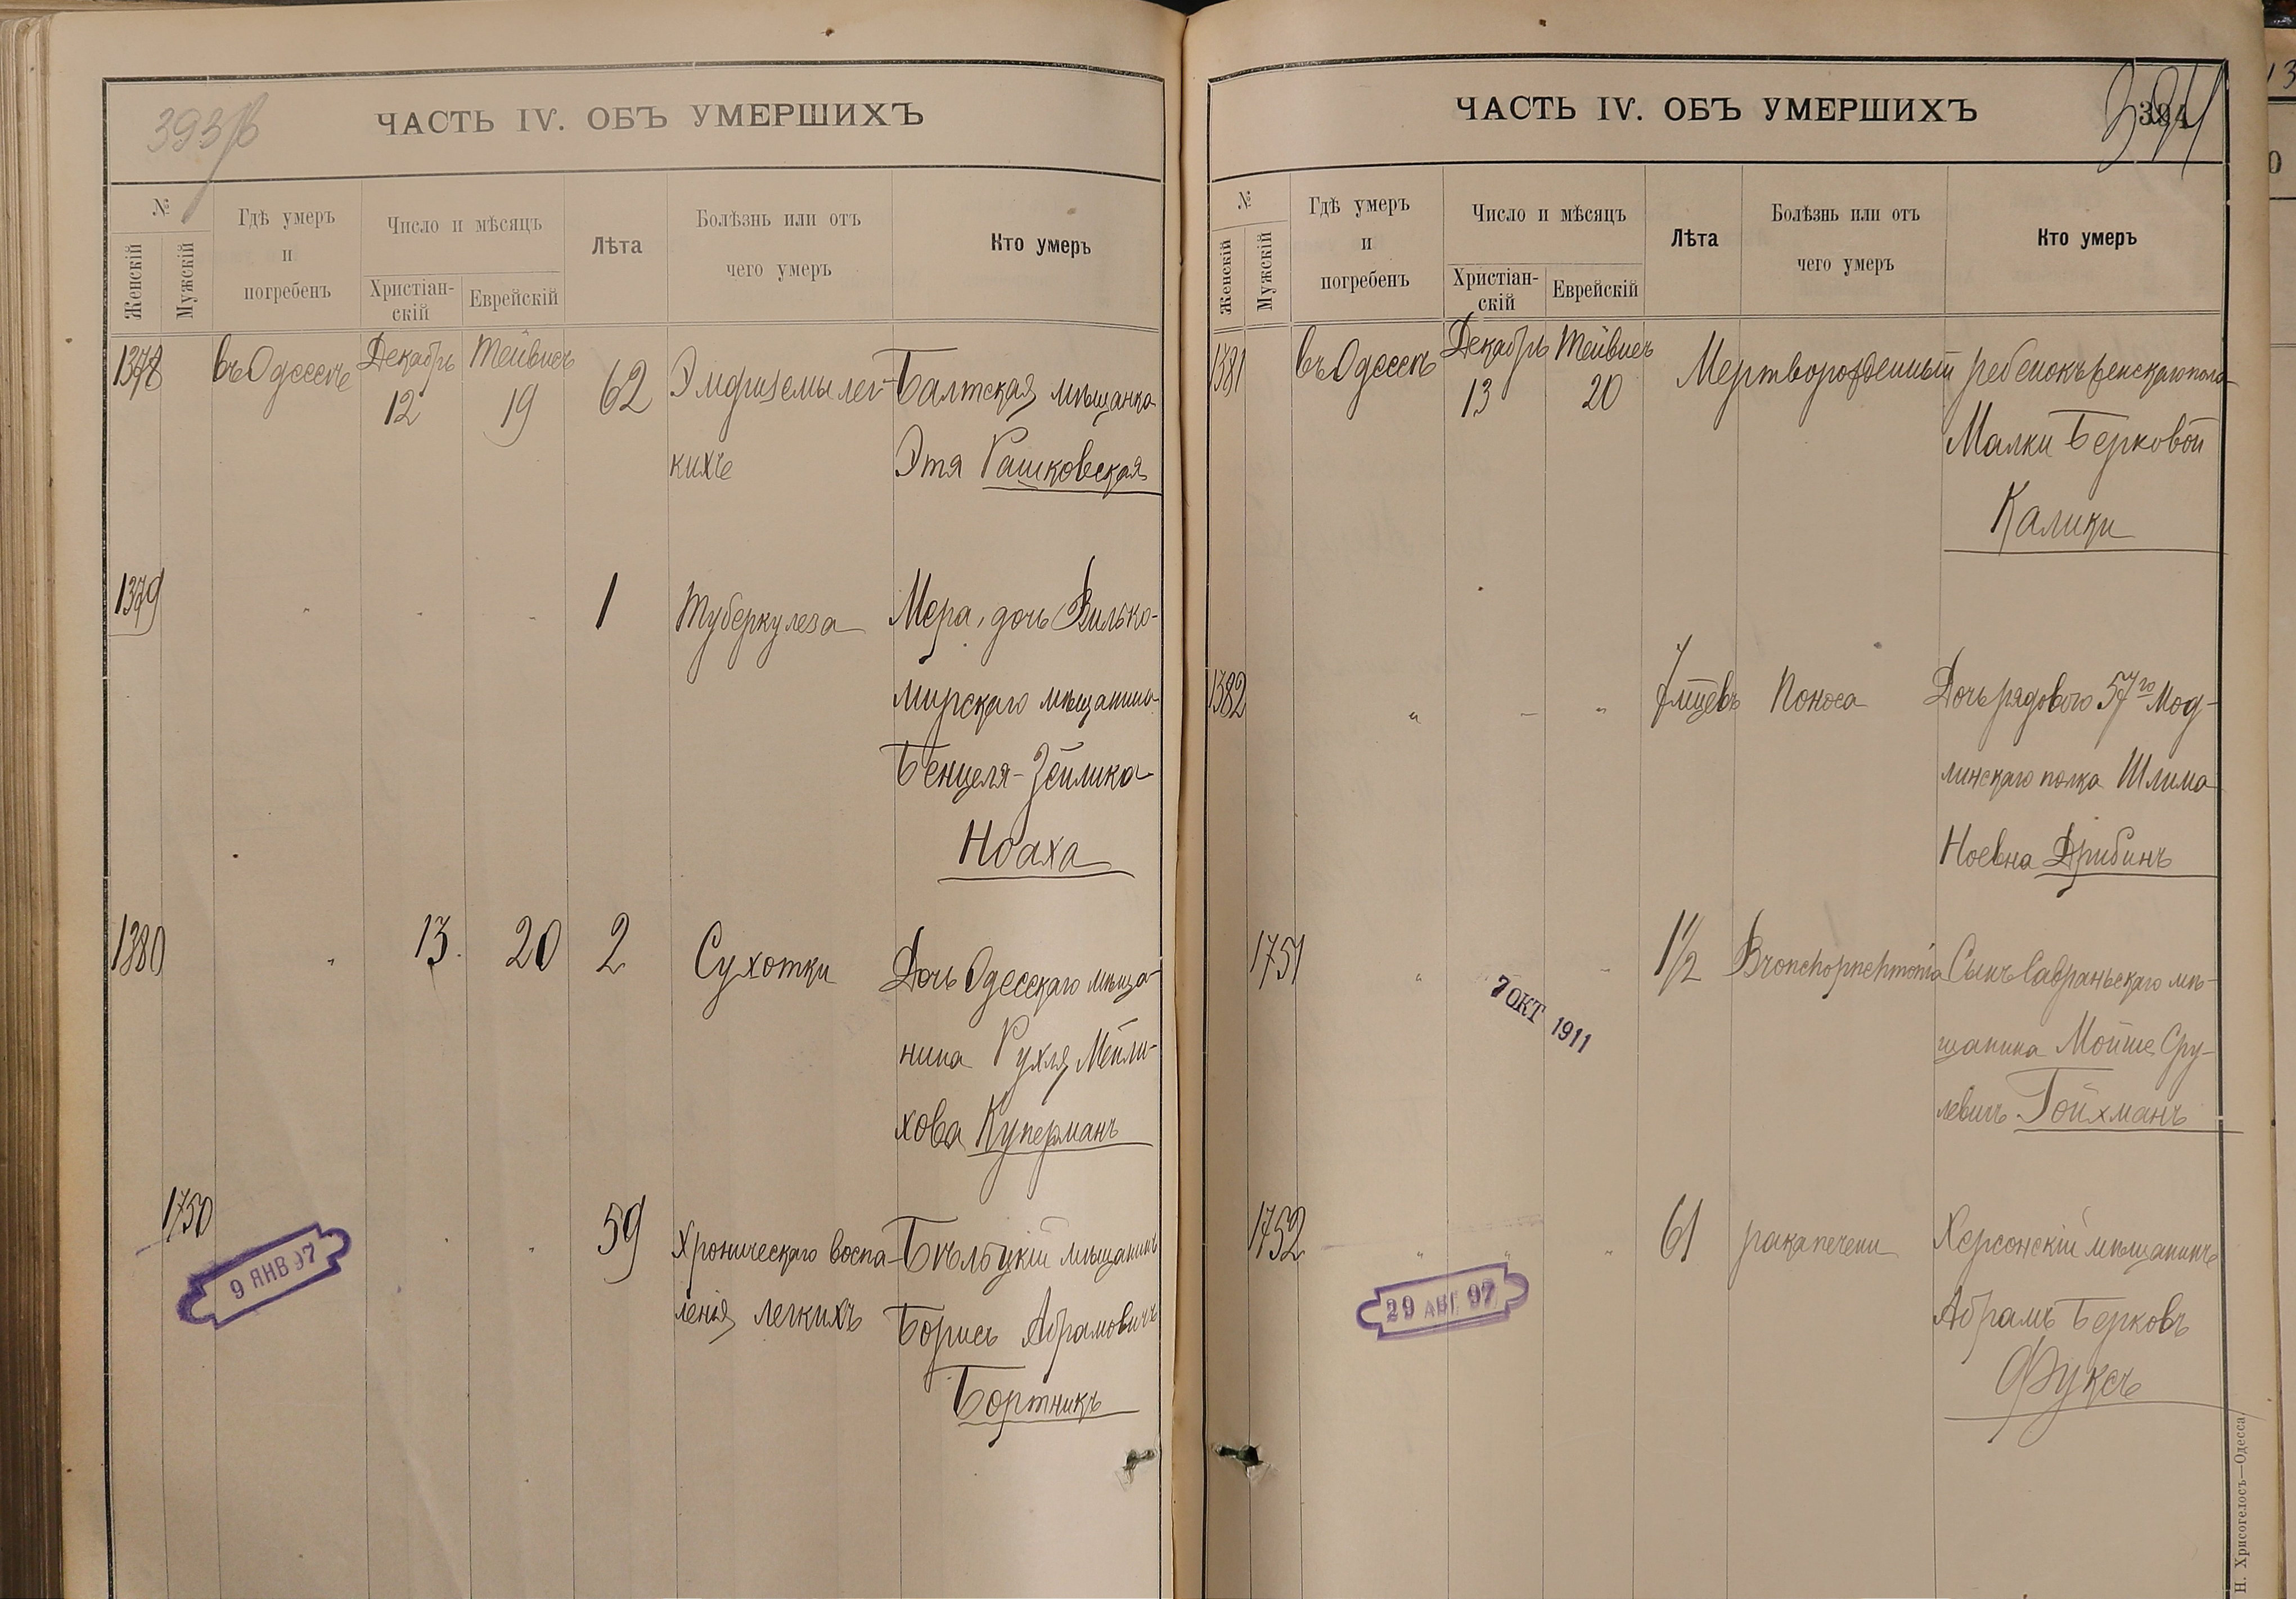 393 об
ЧАСТЬ IV. ОБЪ УМЕРШИХЪ
№
Женскій
Мужскій
Гдѣ умеръ
и
погребенъ
Число и мѣсяцъ
Христіан-
скій
Еврейскій
Лѣта
Болѣзнь или отъ
чего умеръ
Кто умеръ
1378 въ Одессѣ Декабрь Тейвисъ
12 19 62 Эмфиземы лег- Балтская мѣщанка
кихъ Этя Рашковская
1379 " " " 1 Туберкулеза Мера, дочь Вилько-
мирскаго мѣщанина
Бенцеля-Зейлика
Ноаха
1380 " 13. 20 2 Сухотки Дочь Одесскаго мѣща-
нина Рухля Мейли-
хова Куперманъ
1750 " " 59 Хроническаго воспа- Бѣльцкій мѣщанинъ
ленія легкихъ Борисъ Абрамовичъ
Бортникъ
9 ЯНВ 97
ЧАСТЬ IV. ОБЪ УМЕРШИХЪ
394
№
Женскій
Мужскій
Гдѣ умеръ
и
погребенъ
Число и мѣсяцъ
Христіан-
скій
Еврейскій
Лѣта
Болѣзнь или отъ
чего умеръ
Кто умеръ
1381 въ Одессѣ Декабрь Тейвисъ
13 20 Мертворожденный ребенокъ женскаго пола
Малки Берковой
Калики
1382 " " " 7 мѣцевъ Поноса Дочь рядового 57го Мод-
линскаго полка Шлима
Ноевна Дрибинъ
1751 " " 1½ Bronchopnehmonia Сынъ Савраньскаго мѣ-
щанина Мойше Сру-
левичъ Гойхманъ
7 ОКТ 1911
1752 " " " 61 рака печени Херсонскій мѣщанинъ
Абрамъ Берковъ
Фуксъ
29 АВГ 97
Н. Хрисогелосъ—Одесса